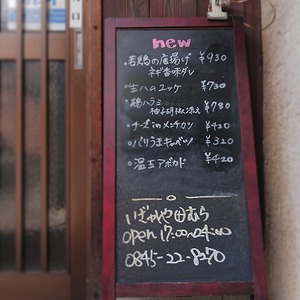 new
・若鶏の唐揚げ ¥930
ネギ香味ダレ
・生ハムユッケ ¥730
・鶏ハラミ ¥780
柚子胡椒添え
・チーズinメンチカツ ¥420
・パリうまキャベツ ¥320
・温玉アボカド ¥420
いざかや 田むら
open 17:00〜24:00
0845-22-8270